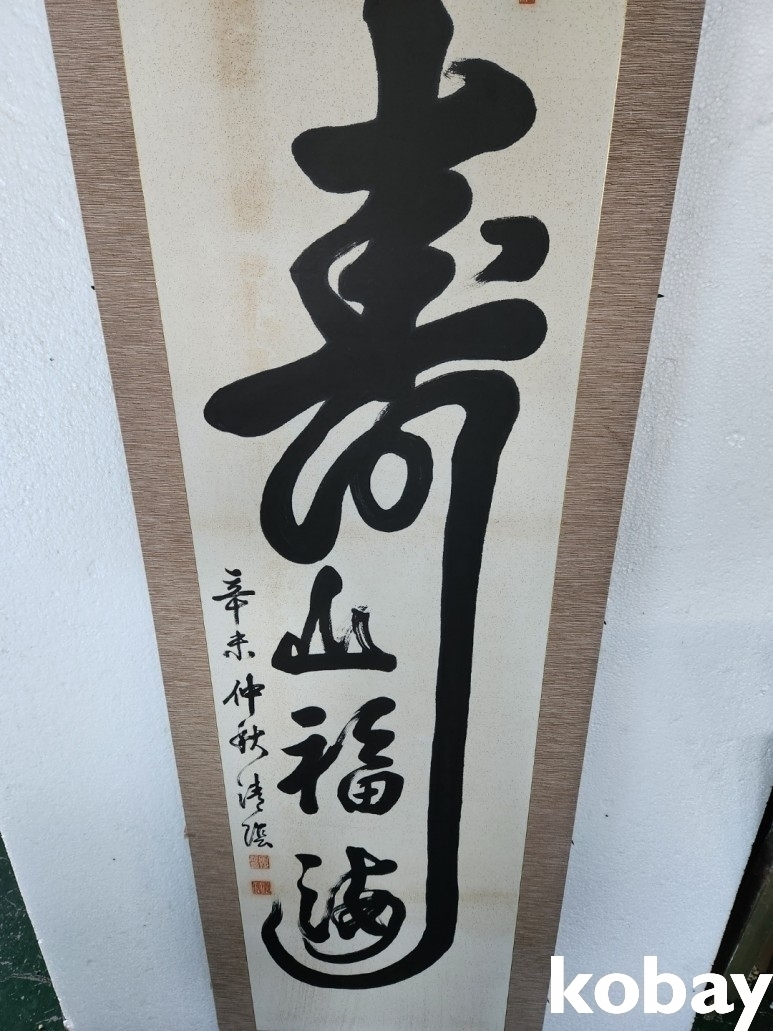 壽山福海
辛未仲秋清蔭
kobay